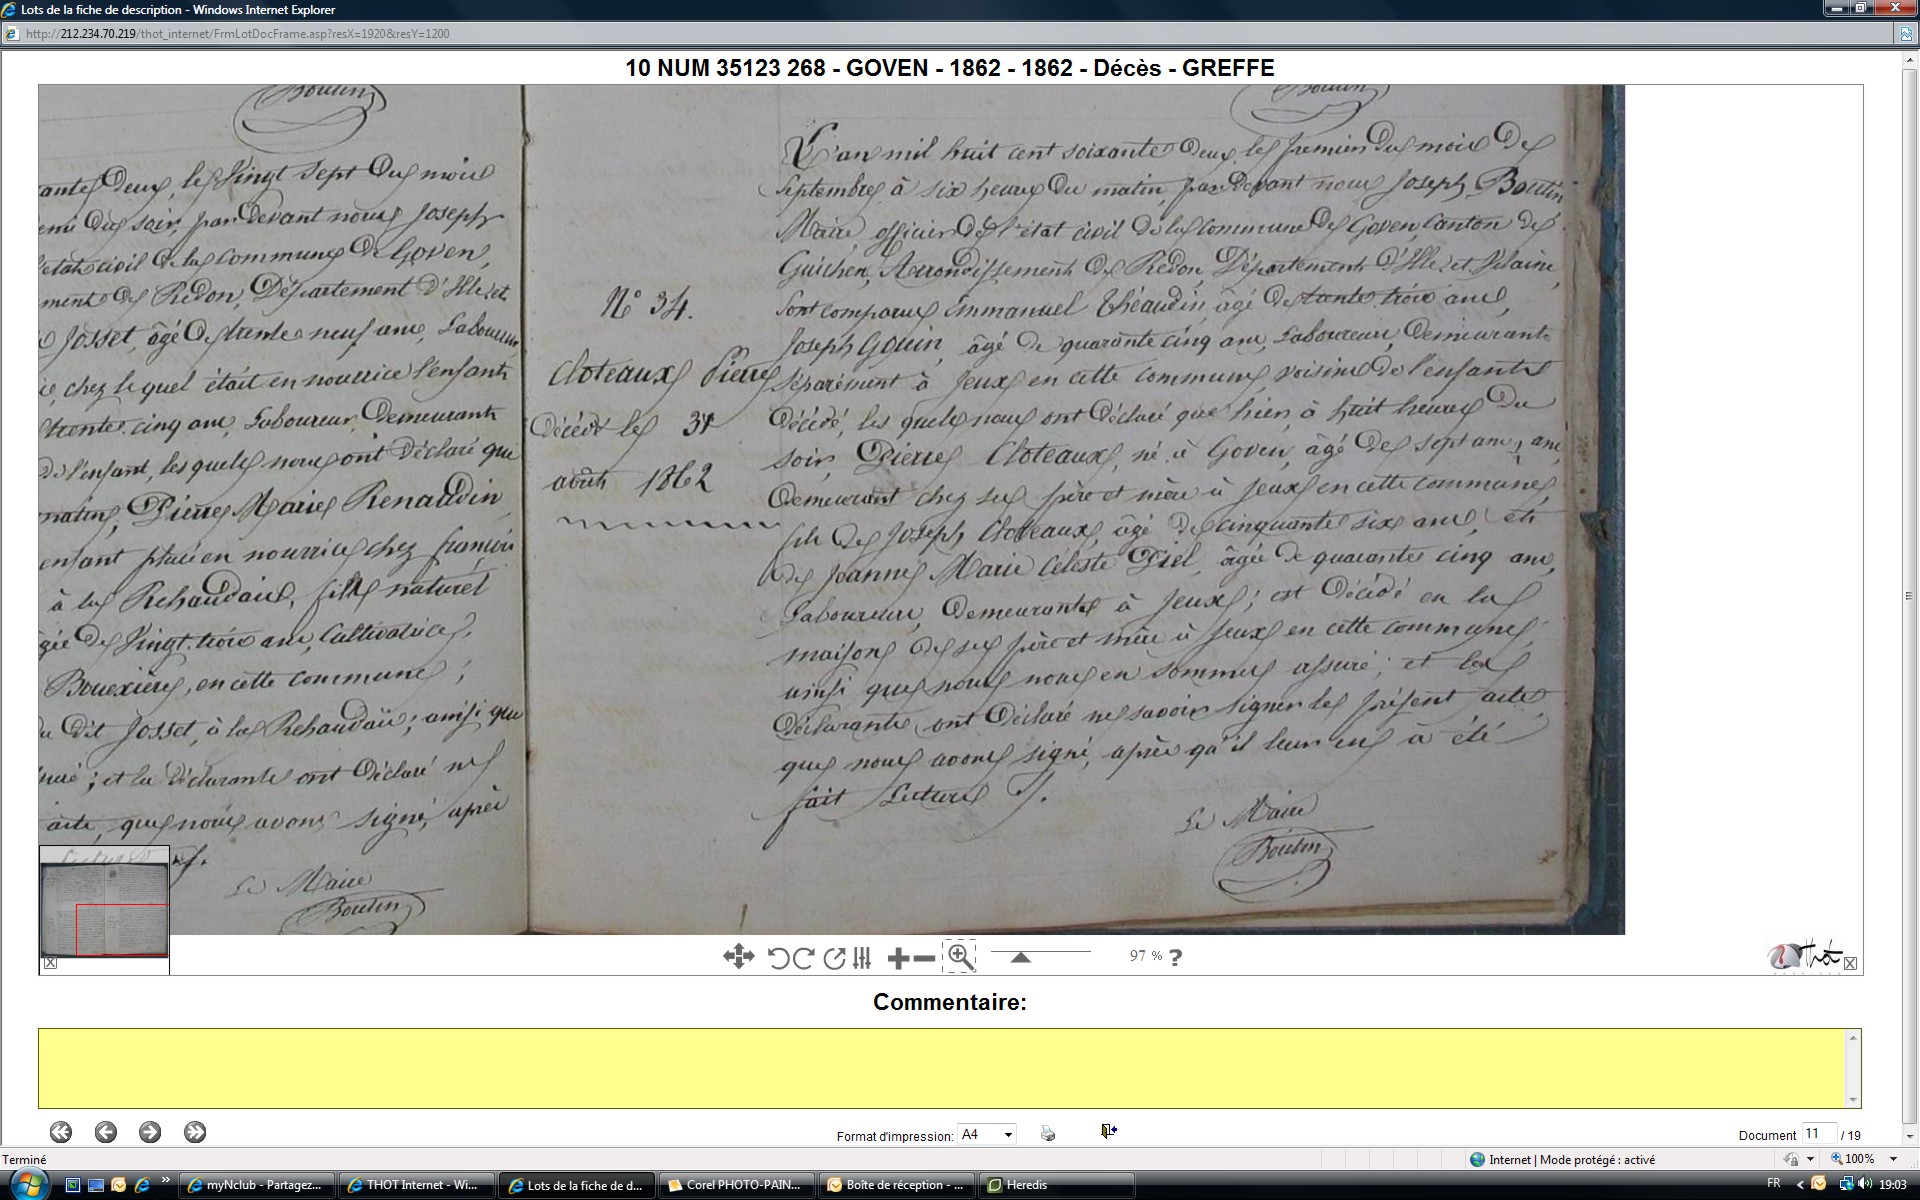 Lots de la fiche de description - Windows Internet Explorer
http://212.234.70.219/thot_internet/FrmLotDocFrame.asp?resX=1920&resY=1200
10 NUM 35123 268 - GOVEN - 1862 - 1862 - Décès - GREFFE
Boutin
ante Deux, le Vingt Sept Du mois
du soir, par Devant nous Joseph
état civil de la commune De Goven,
ment De Redon, Département d'Ille et
Josset, âgé De trente neuf ans, Laboureur
chez lequel était en nourrice l'enfant
trente cinq ans, Laboureur, Demeurant
De l'enfant, lesquels nous ont Déclaré que
matin, Pierre Marie Renaudin
enfant placé en nourrice chez françois
à la Rehaudais, fils naturel
âgée De Vingt trois ans, Cultivatrice,
Bouëxière, en cette commune ;
Dit Josset, à la Rehaudaïs ; ainsi que
; et les déclarants ont Déclaré ne
acte, que nous avons signé, après
Le Maire
Boutin
N° 34.
Cloteaux Pierre
Décédé le 31
août 1862
Boutin
L'an mil huit cent soixante Deux, le premier Du mois De
Septembre à six heures Du matin, par Devant nous Joseph Boutin
Maire, officier De l'état civil De la Commune De Goven, Canton De
Guichen, Arrondissement De Redon, Département D'Ille et Vilaine,
Sont comparus Emmanuel Théaudin, âgé De trente trois ans,
Joseph Gouin, âgé De quarante cinq ans, Laboureurs, Demeurants
Séparément à Jeux en cette commune, voisins De l'enfant
Décédé, les quels nous ont Déclaré que hier, à huit heures Du
soir, Pierre Cloteaux, né à Goven, âgé De sept ans,
Demeurant chez ses père et mère à Jeux en cette commune,
fils De Joseph Cloteaux, âgé De cinquante six ans, et
De Jeanne Marie Céleste Piel, âgée De quarante cinq ans,
Laboureurs, Demeurants à Jeux ; est Décédé en la
maison De ses père et mère à Jeux en cette commune,
ainsi que nous nous en sommes assuré ; et les
Déclarants ont Déclaré ne savoir signer le présent acte
que nous avons signé, après qu'il leur en a été
fait Lecture
Le Maire
Boutin
97 % ?
Thot
Commentaire:
Format d'impression: A4
Document 11 / 19
Terminé
Internet | Mode protégé : activé
100%
myNclub - Partagez...
THOT Internet - Wi...
Lots de la fiche de d...
Corel PHOTO-PAIN...
Boîte de réception - ...
Heredis
FR
19:03